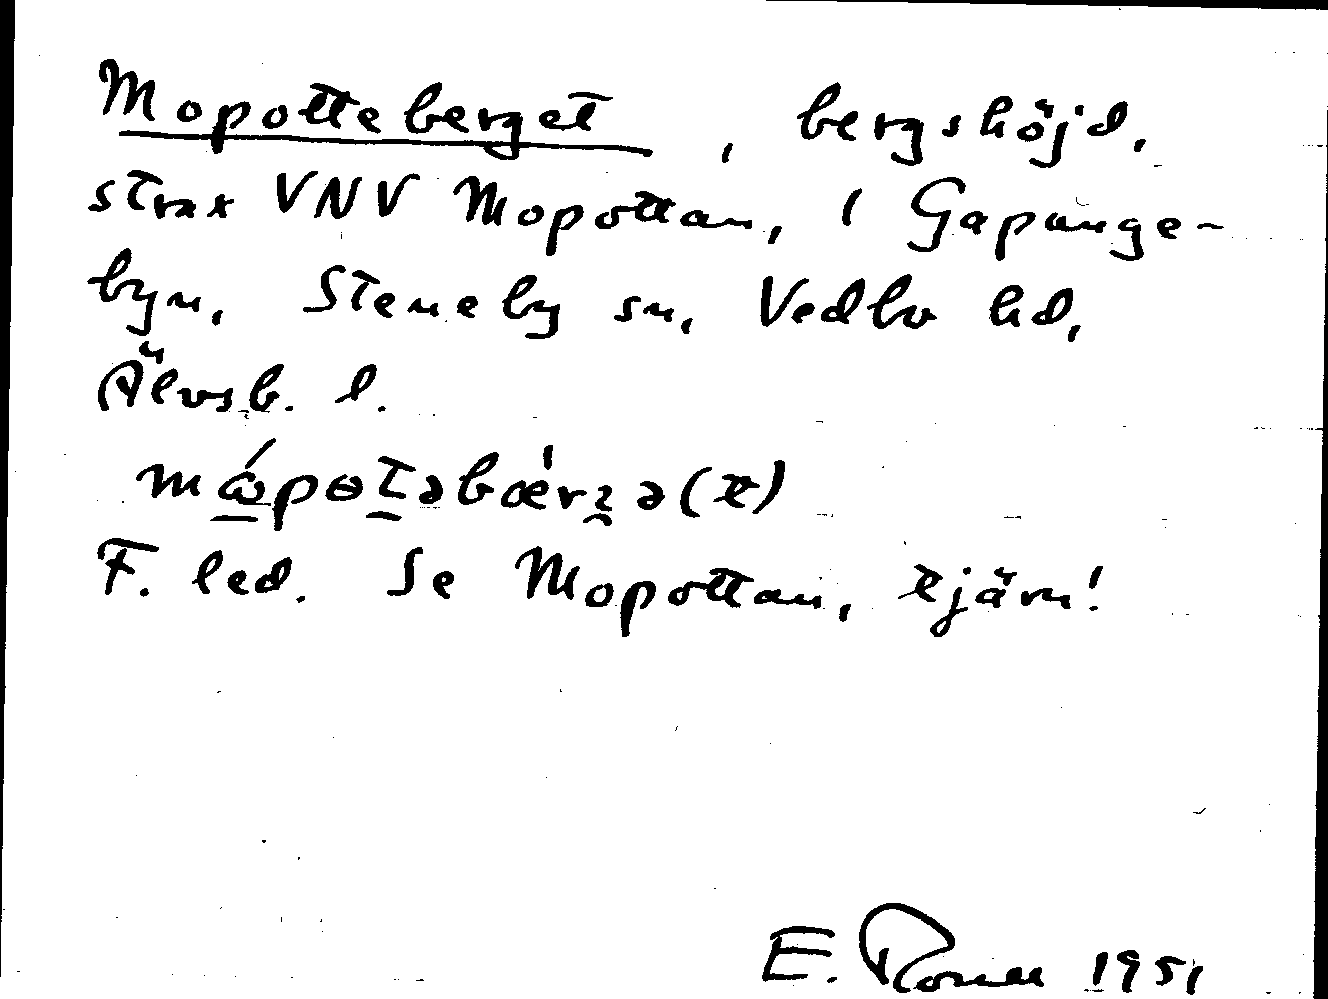 Mopotteberget, bergshöjd.
strax VNV Mopottan, i Gapunge-
byn, Steneby sn, Vedbo hd,
Älvsb. l.
mώpɵtəbǽrʒə(t)
F. led. Se Mopottan, tjärn!
E. 1951